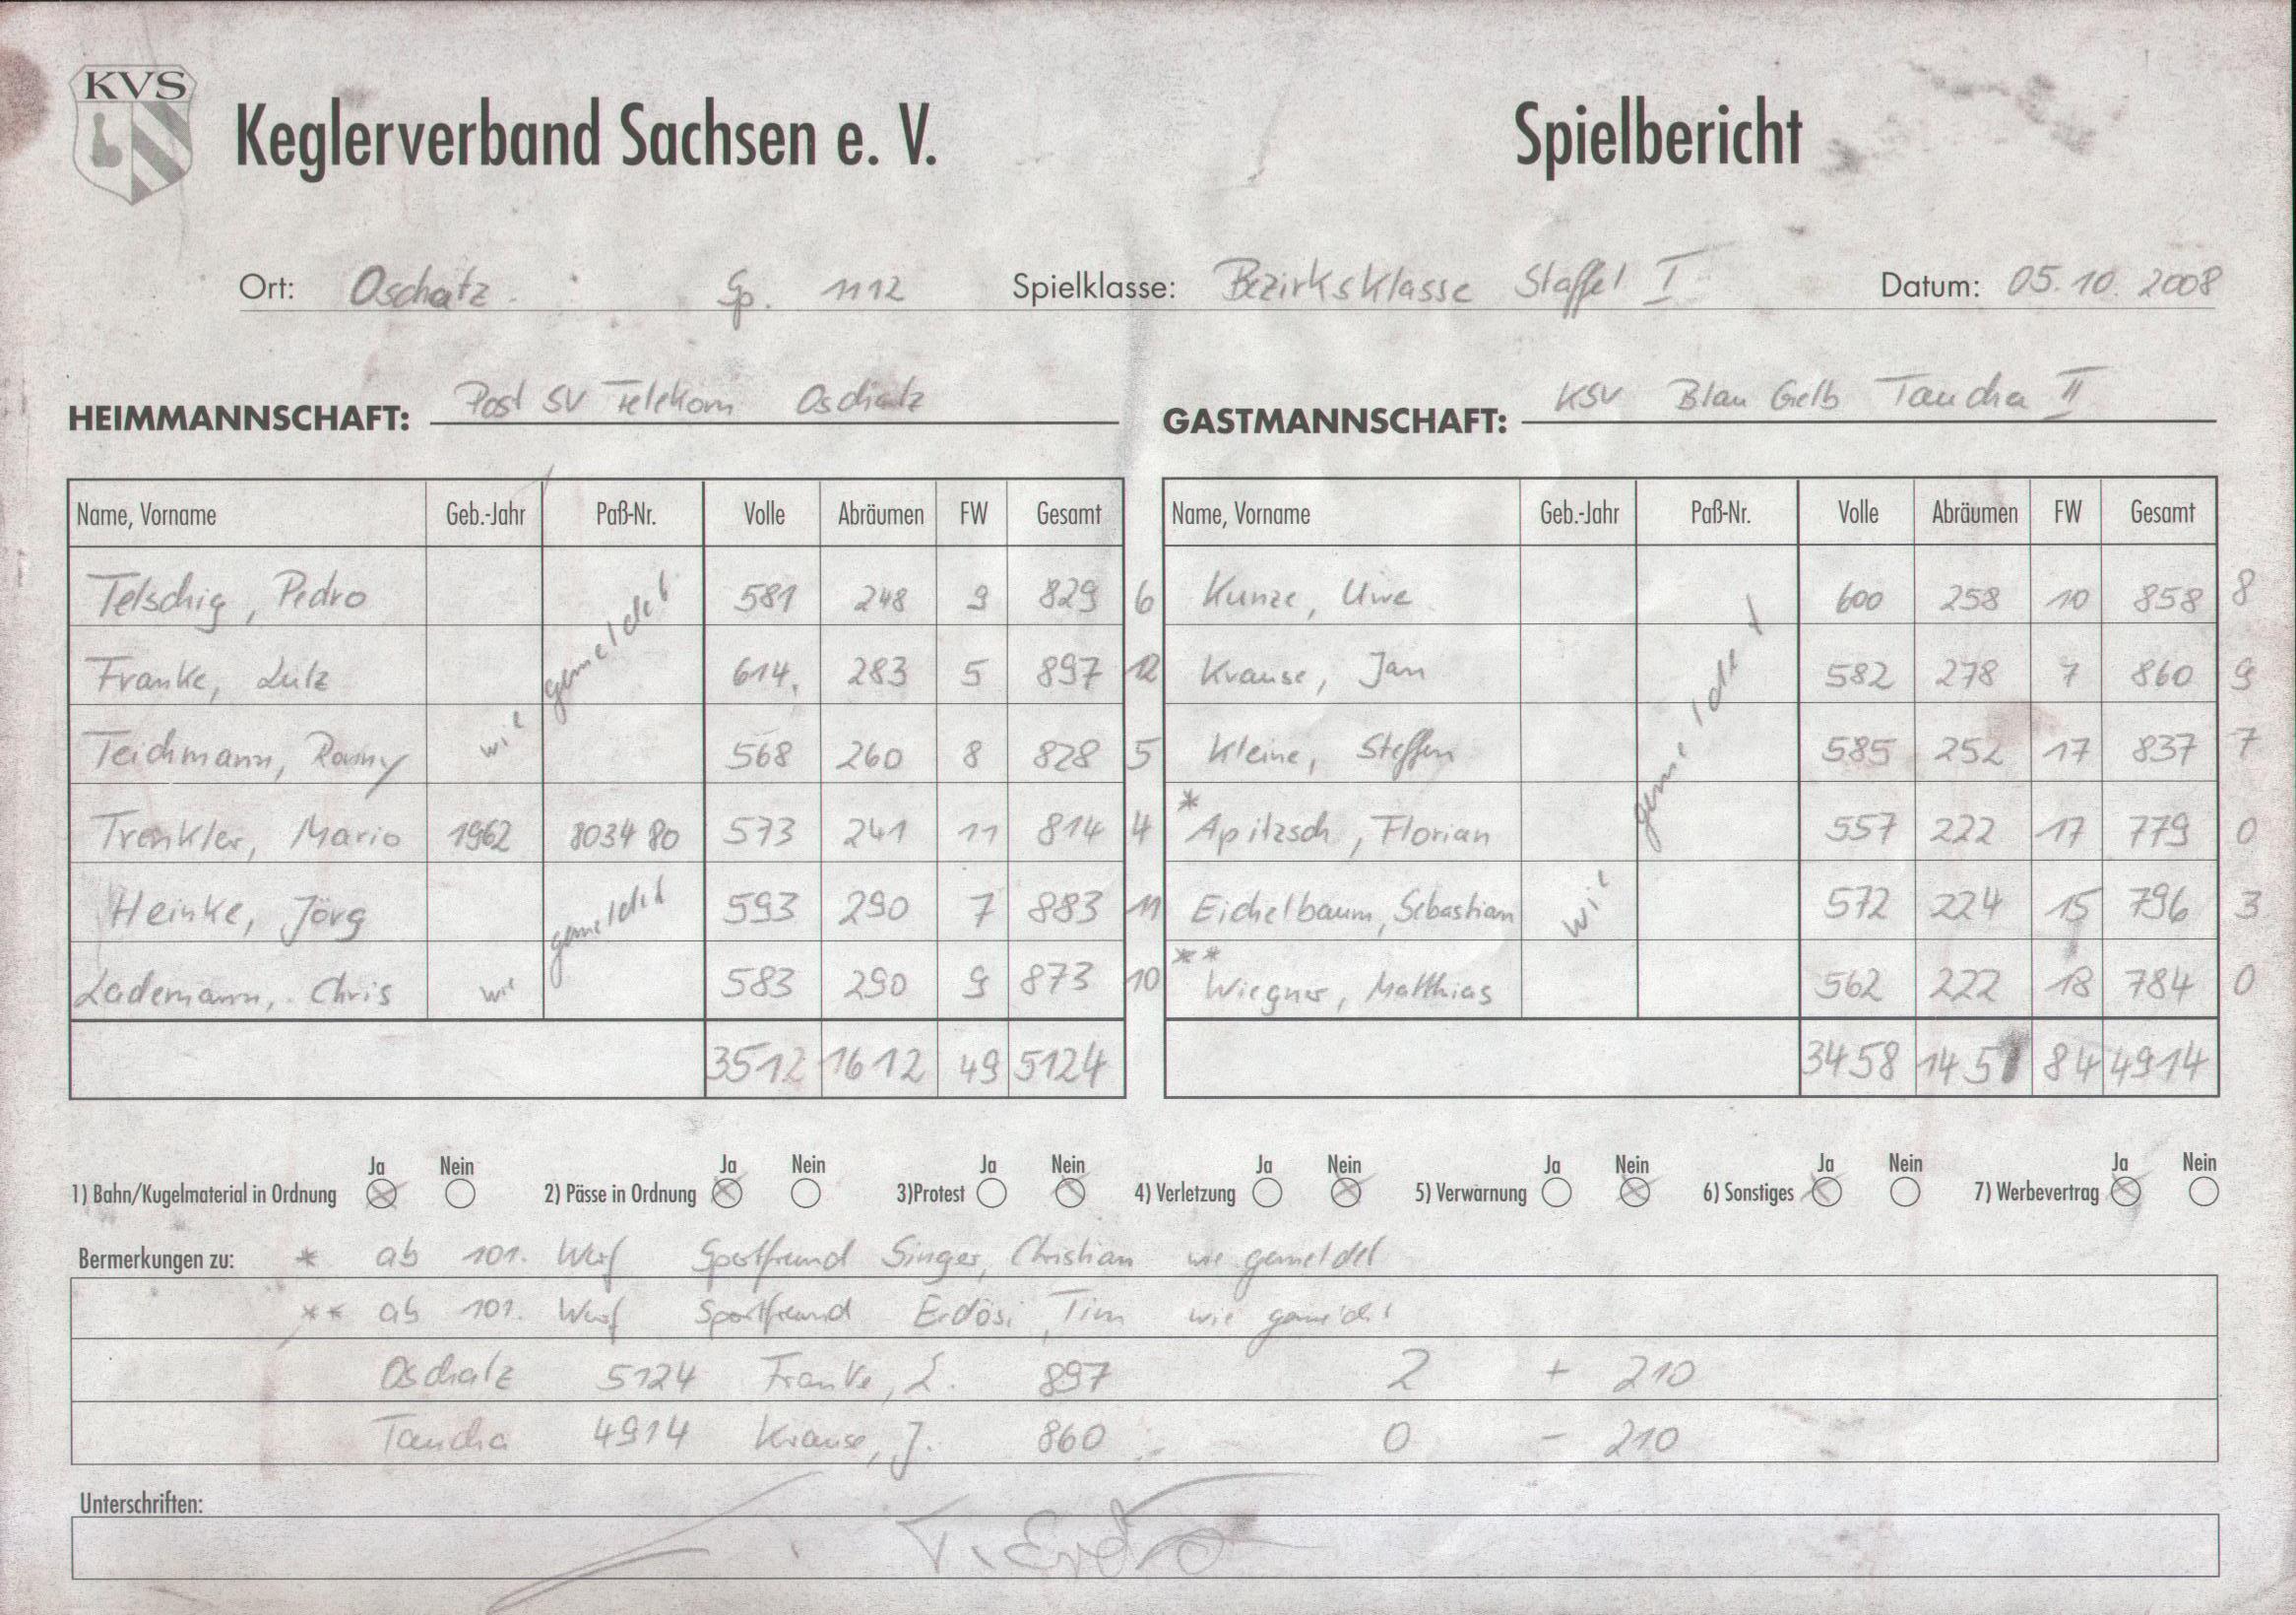 KVS
Keglerverband Sachsen e. V. Spielbericht
Ort: Oschatz Sp. 1112 Spielklasse: Bezirksklasse Staffel I Datum: 05.10.2008
HEIMMANNSCHAFT: Post SV Telekom Oschatz GASTMANNSCHAFT: KSV Blau Gelb Taucha II
Name, Vorname Geb.-Jahr Paß-Nr. Volle Abräumen FW Gesamt Name, Vorname Geb.-Jahr Paß-Nr. Volle Abräumen FW Gesamt
Telschig, Pedro 581 248 9 829 6 Kunze, Uwe 600 258 10 858 8
Franke, Lutz 614 283 5 897 12 Krause, Jan 582 278 7 860 9
Teichmann, Ramy wie gemeldet 568 260 8 828 5 Kleine, Steffen 585 252 17 837 7
Trenkler, Mario 1962 803480 573 241 11 814 4 * Apitzsch, Florian 557 222 17 779 0
Heinke, Jörg 593 290 7 883 11 Eichelbaum, Sebastian wie gemeldet 572 224 15 796 3
Lademann, Chris wie gemeldet 583 290 9 873 10 ** Wiegner, Matthias 562 222 18 784 0
3512 1612 49 5124 3458 84 4914
Ja Nein Ja Nein Ja Nein Ja Nein Ja Nein Ja Nein Ja Nein
1) Bahn/Kugelmaterial in Ordnung 2) Pässe in Ordnung 3)Protest 4) Verletzung 5) Verwarnung 6) Sonstiges 7) Werbevertrag
Bermerkungen zu: * ab 101. Wurf Sportfreund Singer, Christian wie gemeldet
** ab 101. Wurf Sportfreund Erdösi, Tim wie gemeldet
Oschatz 5124 Franke, L. 897 2 + 210
Taucha 4914 Krause, J. 860 0 - 210
Unterschriften: